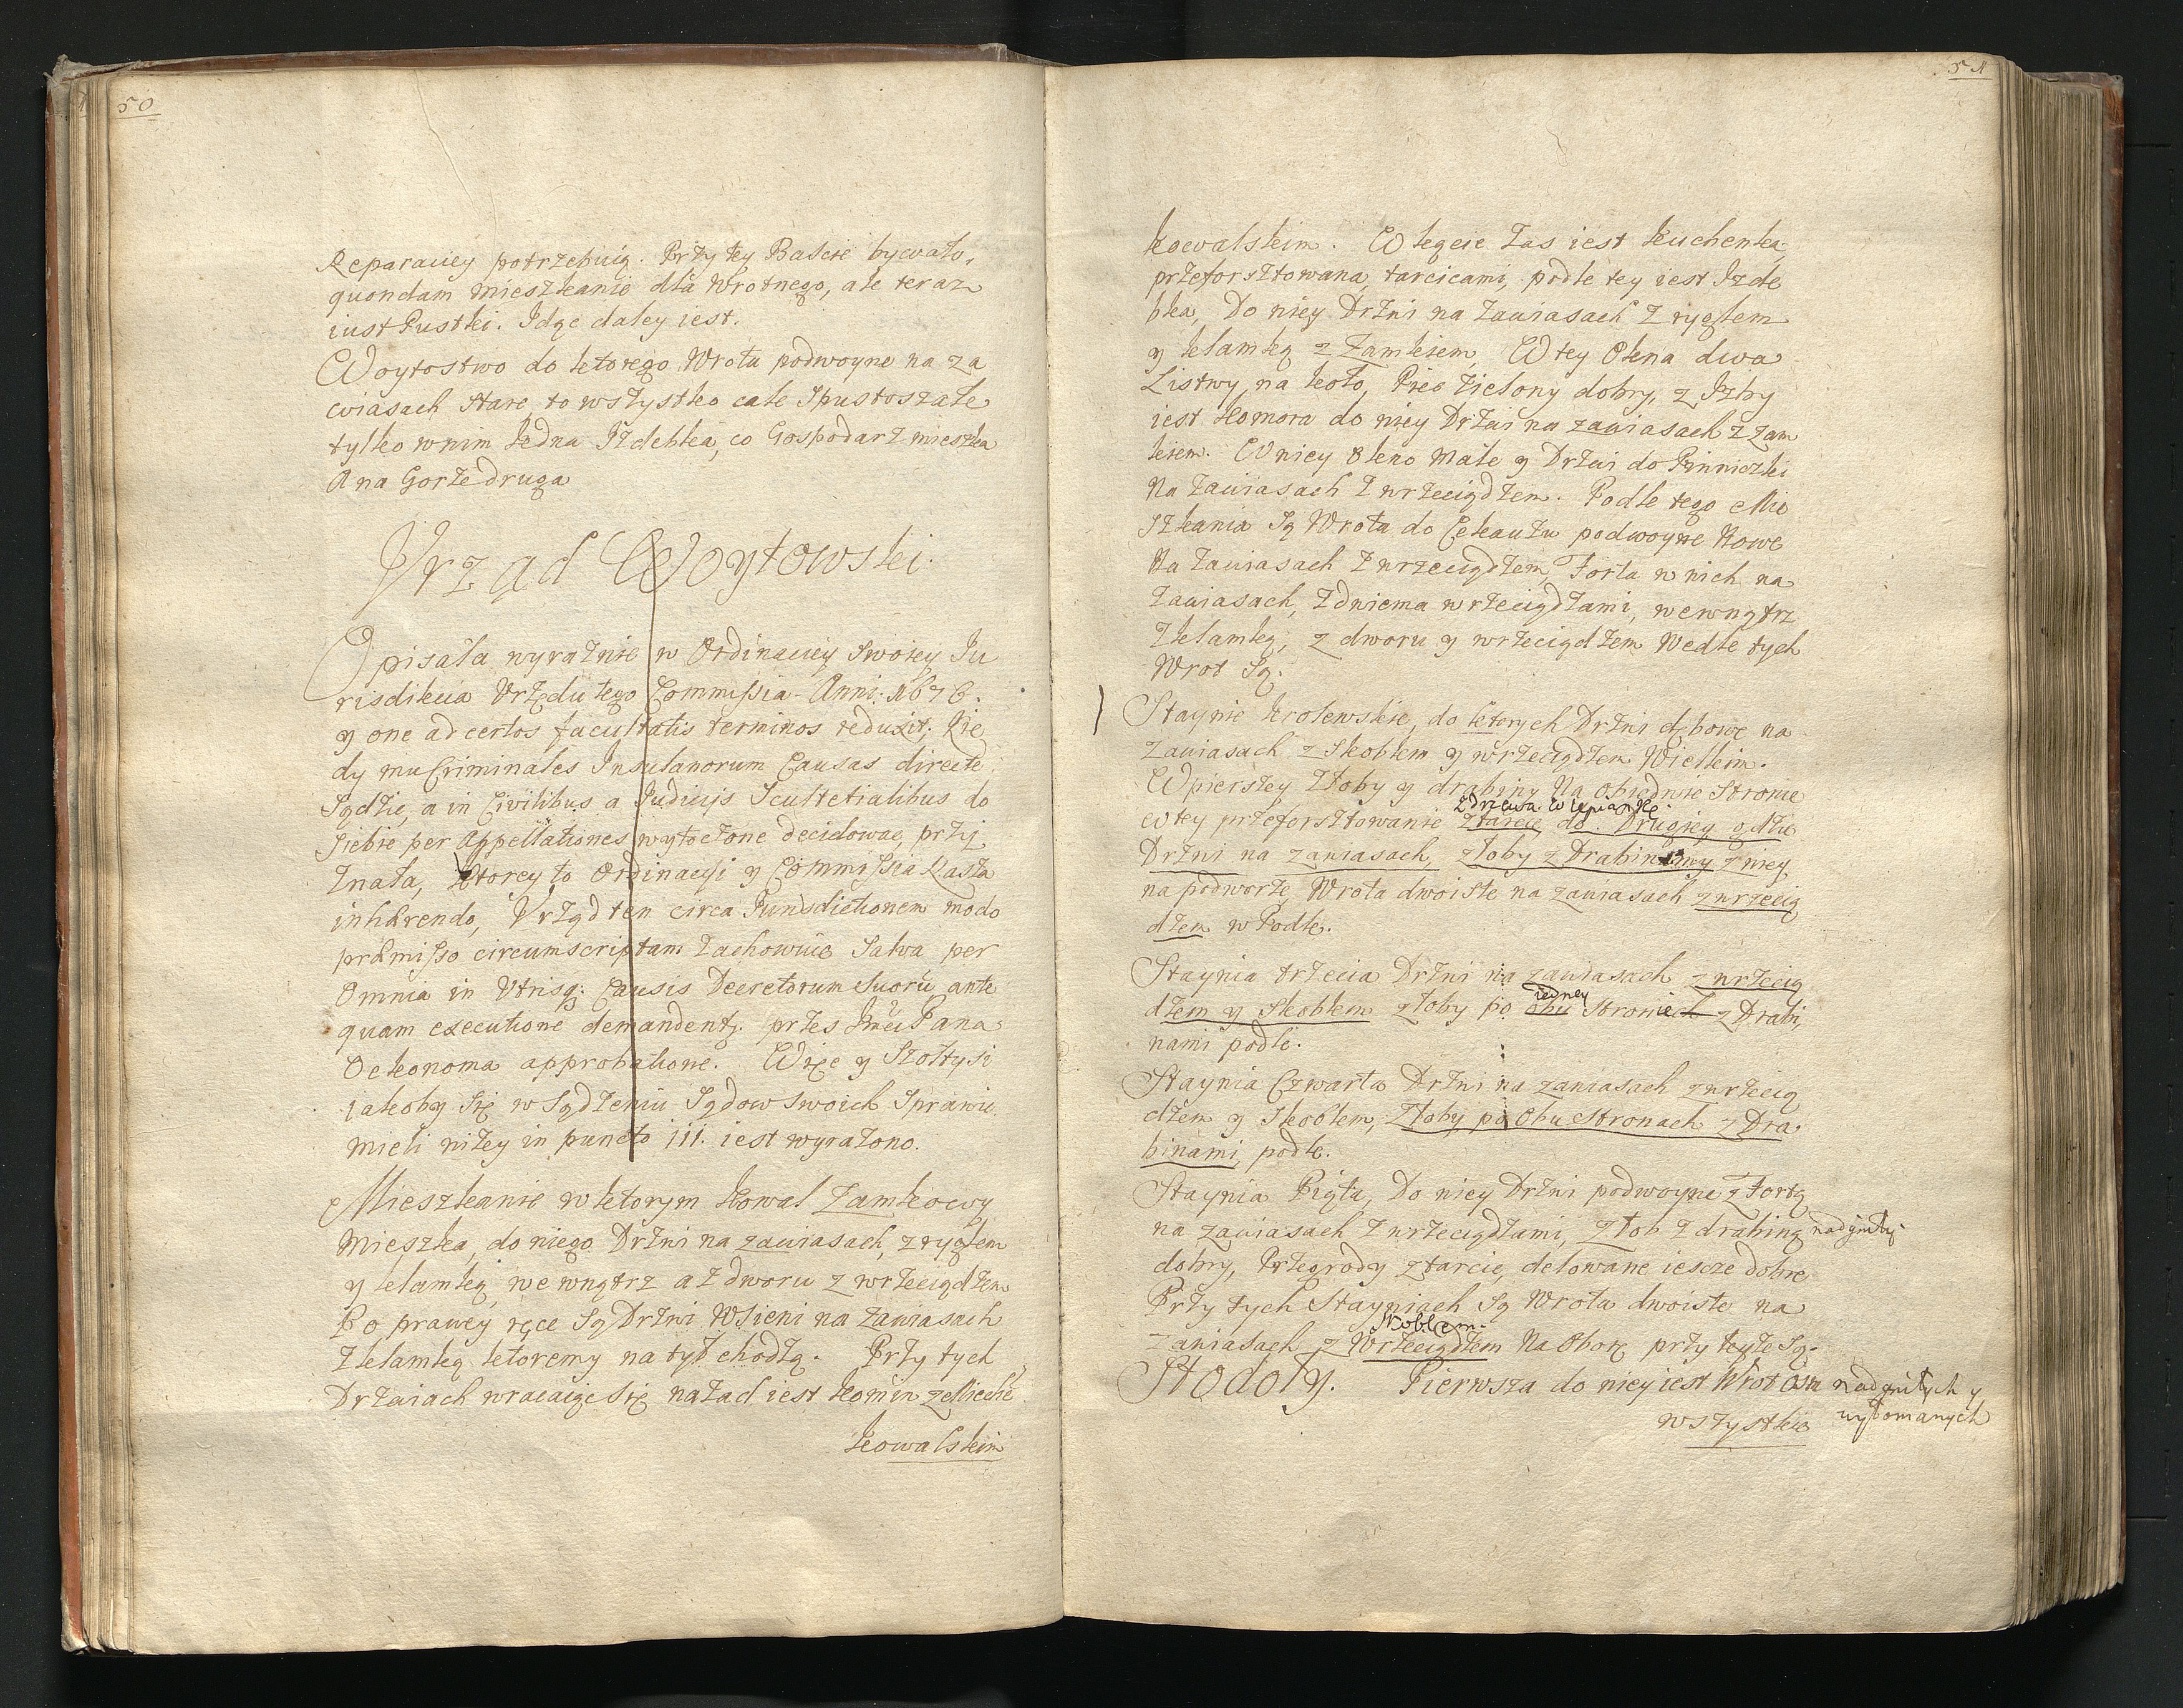 50
Reparaciey potrzebuią. Przy tey Baście bywało,
quondam mieszkanie dla Wrotnego, ale teraz
iust Pustki. Idąc daley iest.
Woytostwo do ktorego Wrota podwoyne na za
wiasach stare, to wszystko cale spustoszałe
tylko wnim Jedna Izdebka, co Gospodarz mieszka
A na Gorze druga
Vrząd Woytowski.
Opisała wyraznie w Ordinaciey Swoiey Ju
risdikcia Vrzędu tego Commissia Anni: 1676.
y one ad certos facultatis terminos reduxit; Kie
dy mu Criminales Insulanorum Causas directè
Sądzić, a in Civilibus a Judicijs Scultetialibus do
siebie per Appellationes wytoczone decidować, przy
znała, Ktorey to Ordinacyi y Commissia Laska
inhærendo, Vrząd ten circa Jurisdictionem modo
præmisso circumscriptam zachowuie Salva per
Omnia in Vtrisq; Causis Decretorum Suorū ante
quam executione demandentr. przes Jmci Pana
Oekonoma approbatione. Więc y Szołtysi
iakoby się w Sądzeniu Sądow swoich Sprawic
mieli niżey in puncto iii. iest wyrażono.
Mieszkanie w ktorym Kowal Zamkowy
Mieszka, do niego Drzwi na zawiasach, z ryglem
y klamką we wnątrz a z dworu z wrzeciądzem
Po prawey ręce są Drzwi W sieni na zawiasach
z klamką ktoremy na tył chodzą. Przy tych
Drzwiach wracaiąc się nazad iest Komin z Miechē
Kowalskim
51
Kowalskim. W kącie zas iest Kuchenka
przeforsztowana tarcicami, podle tey iest Izde
bka, Do niey Drzwi na zawiasach z ryglem
y klamką z Zamkiem, W tey Okna dwa
Listwy na koło, Piec zielony dobry, z Izby
iest Komora do niey Drzwi na zawiasach z zam
kiem. W niey Okno Małe y Drzwi do Piwniczki
Na zawiasach z wrzeciądzem. Podle tego Mie
szkania są Wrota do Cekauzu podwoyne Nowe
Na zawiasach z wrzeciądzem, Forta w nich na
zawiasach, z dwiema wrzeciądzami, wewnątrz
z klamką, z dworu y wrzeciądzem Wedle tych
Wrot Są.
Staynie Krolewskie, do ktorych Drzwi dębowe na
zawiasach z Skoblem y wrzeciądzem Wielkim.
W pierszey Żłoby y drabiny Na obiedwie stronie
z drzewa w wiązankę.
w tey przeforsztowanie z tarcic, do Drugiey gdzie
Drzwi na zawiasach, złoby z Drabinamy z niey
na podworze, Wrota dwoiste na zawiasach z wrzecią
dzem w Podle.
Staynia trzecia Drzwi na zawiasach z wrzecią
iedney
dzem y Skoblem złoby po obu Stronie z Drabi,
nami podłe.
Staynia Czwarta Drzwi na zawiasach z wrzecią
dzem y Skoblem, Złoby po Obu Stronach z Dra
binami, podłe.
Staynia Piąta, Do niey Drzwi podwoyne z fortą
na zawiasach z wrzeciądzami, złob z drabiną nadgniłą
dobry, Przegrody z tarcic, delowane iescze dobre
Przy tych Stayniach są Wrota dwoiste na
Skoblem.
zawiasach z Wrzeciądzem Na Oborę przy teyze Są.
Stodoły. Pierwsza do niey iest Wrot Osm nadgniłych y
wyłomanych
wszystkie